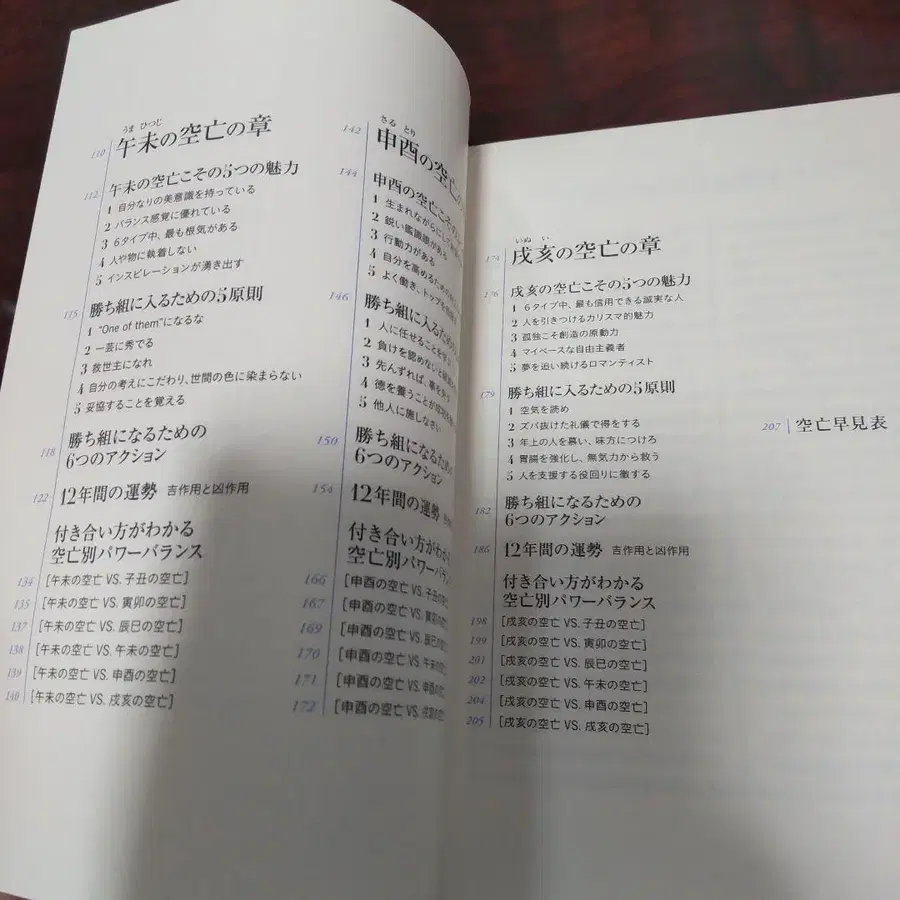 うま ひつじ
110 午未の空亡の章
112 午未の空亡こその5つの魅力
1 自分なりの美意識を持っている
2 バランス感覚に優れている
3 6タイプ中、最も根気がある
4 人や物に執着しない
5 インスピレーションが湧き出す
115 勝ち組に入るための5原則
1 “One of them”になるな
2 一芸に秀でる
3 救世主になれ
4 自分の考えにこだわり、世間の色に染まらない
5 妥協することを覚える
118 勝ち組になるための
6つのアクション
122 12年間の運勢 吉作用と凶作用
付き合い方がわかる
空亡別パワーバランス
134 [午未の空亡 VS. 子丑の空亡]
135 [午未の空亡 VS. 寅卯の空亡]
137 [午未の空亡 VS. 辰巳の空亡]
138 [午未の空亡 VS. 午未の空亡]
139 [午未の空亡 VS. 申酉の空亡]
140 [午未の空亡 VS. 戌亥の空亡]
さる とり
142 申酉の空亡
144 申酉の空亡こその
1 生まれながらにして
2 鋭い鑑識眼がある
3 行動力がある
4 自分を高めるための
5 よく働き、トップを
146 勝ち組に入るため
1 人に任せることを
2 負けを認めないと
3 先んずれば、
4 徳を養うことが
5 他人に施しなさい
150 勝ち組になるための
6つのアクション
154 12年間の運勢
付き合い方がわか
空亡別パワーバラン
166 [申酉の空亡 VS. 子丑の空
167 [申酉の空亡 VS. 寅卯の空
169 [申酉の空亡 VS. 辰巳の空
170 [申酉の空亡 VS. 午未の空
171 [申酉の空亡 VS. 申酉の空
172 [申酉の空亡 VS. 戌亥の空
いぬ い
174 戌亥の空亡の章
176 戌亥の空亡こその5つの魅力
1 6タイプ中、最も信用できる誠実な人
2 人を引きつけるカリスマ的魅力
3 孤独こそ創造の原動力
4 マイペースな自由主義者
5 夢を追い続けるロマンティスト
179 勝ち組に入るための5原則
1 空気を読め
2 ズバ抜けた礼儀で得をする
3 年上の人を慕い、味方につけろ
4 胃腸を強化し、無気力から救う
5 人を支援する役回りに徹する
182 勝ち組になるための
6つのアクション
186 12年間の運勢 吉作用と凶作用
付き合い方がわかる
空亡別パワーバランス
198 [戌亥の空亡 VS. 子丑の空亡]
199 [戌亥の空亡 VS. 寅卯の空亡]
201 [戌亥の空亡 VS. 辰巳の空亡]
202 [戌亥の空亡 VS. 午未の空亡]
204 [戌亥の空亡 VS. 申酉の空亡]
205 [戌亥の空亡 VS. 戌亥の空亡]
207 空亡早見表